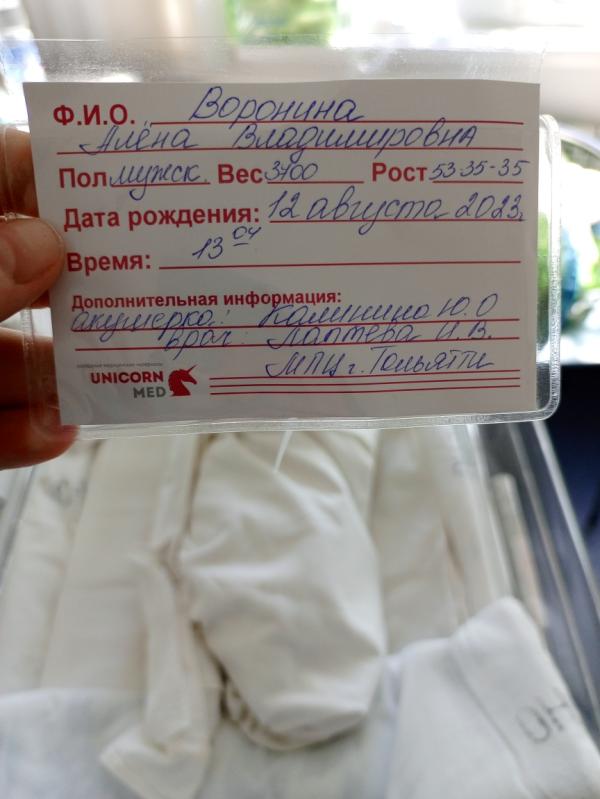 Ф.И.О. Воронина
Алёна Владимировна
Пол мужск. Вес 3700 Рост 53-35-35
Дата рождения: 12 августа 2023.
Время: 13 04
Дополнительная информация:
акушерка: Калинина Ю.О
врач: Лаптева И.В.
МПЦ г. Тольятти
UNICORN
MED
ОН